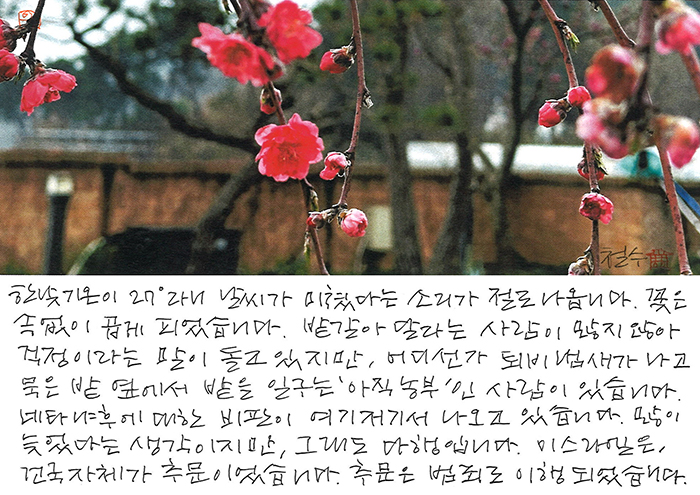 철수
한낮기온이 27°라니 날씨가 미쳤다는 소리가 절로 나옵니다. 꽃은
속없이 곱게 피었습니다. 밭갈아 달라는 사람이 많지 않아
걱정이라는 말이 돌고 있지만, 어디선가 퇴비 냄새가 나고
묵은 밭 옆에서 밭을 일구는 '아직 농부'인 사람이 있습니다.
네타냐후에 대한 비판이 여기저기서 나오고 있습니다. 많이
늦었다는 생각이지만, 그래도 다행입니다. 이스라엘은,
건국자체가 추문이었습니다. 추문은 범죄로 이행되었습니다.